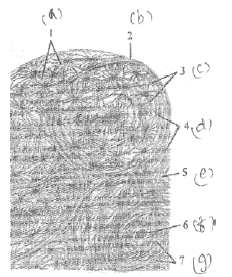 (a) (b)
1 2
3 (c)
4 (d)
5 (e)
6 (f)
7 (g)